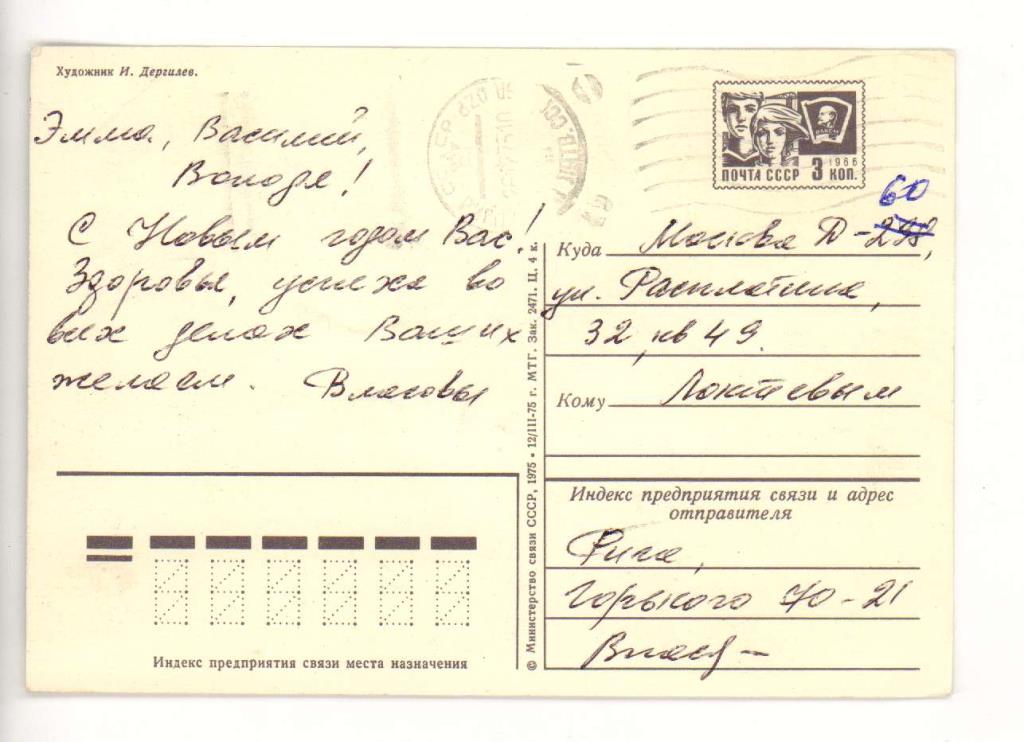 Художник И. Дергилев.
Эмма, Василий,
Володя!
С Новым годом Вас!
Здоровья, успеха во
всех делах Ваших
желаем. Власовы
ПОЧТА СССР 3 КОП.
1966
ВЛКСМ
60
Куда Москва Д-298,
ул. Расплетина,
32, кв 49.
Кому Локтевым
Индекс предприятия связи и адрес
отправителя
Рига,
Горького 70-21
Индекс предприятия связи места назначения
© Министерство связи СССР, 1975 • 12/III-75 г. МТГ. Зак. 2471. Ц. 4 к.